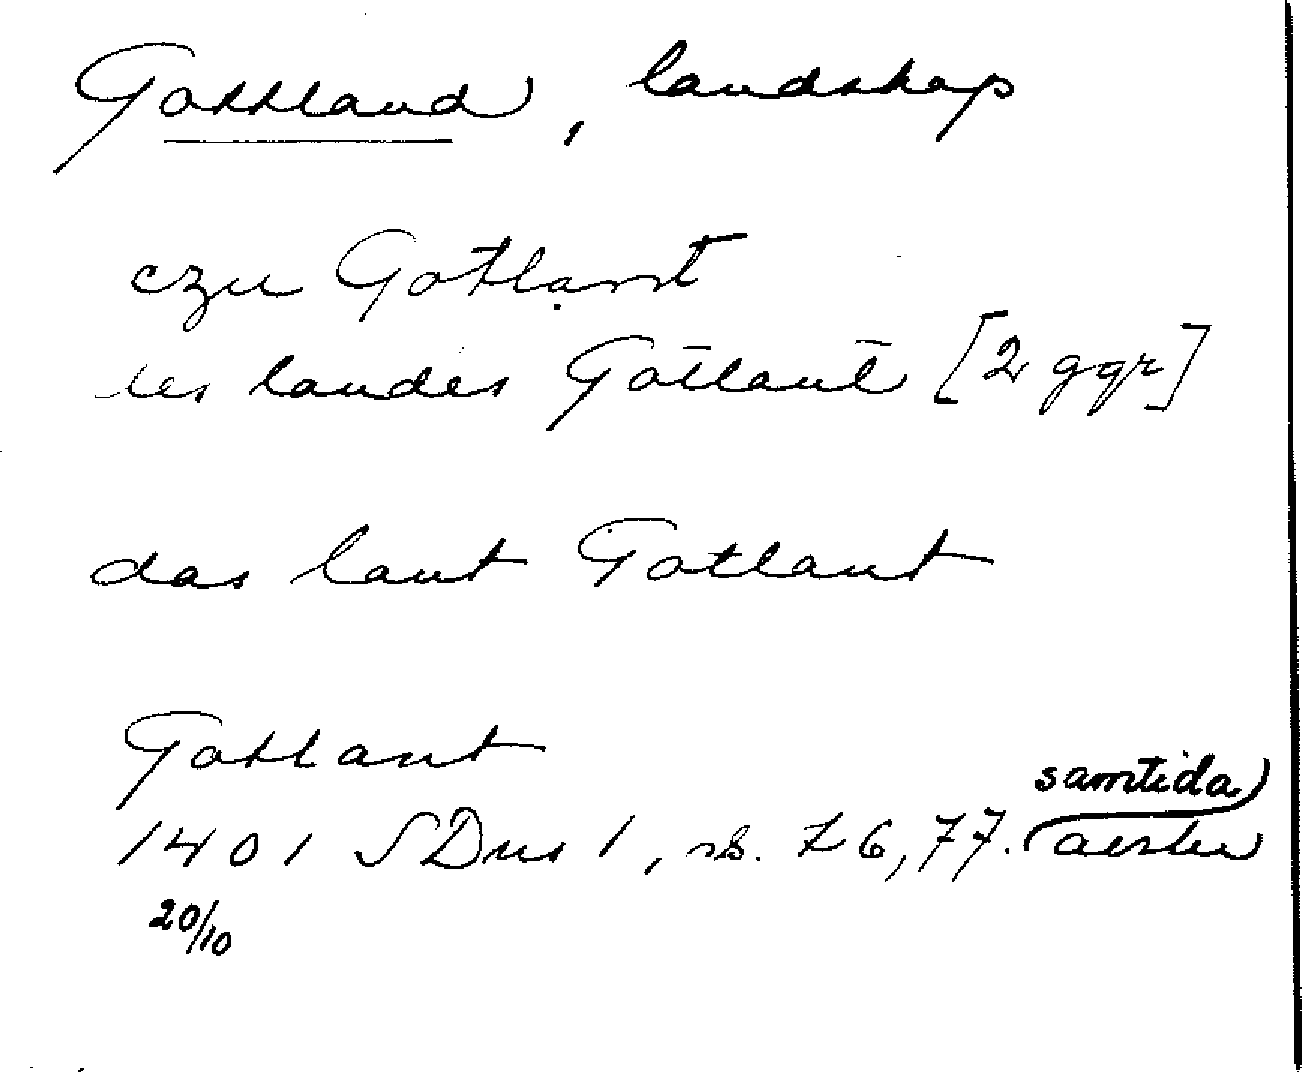 Gottland, landskap
czu Gotlant
des landes Gotlant [2 ggr]
das lant Gotlant
Gotlant
samtida
1401 SDns 1, s. 76, 77.
20/10